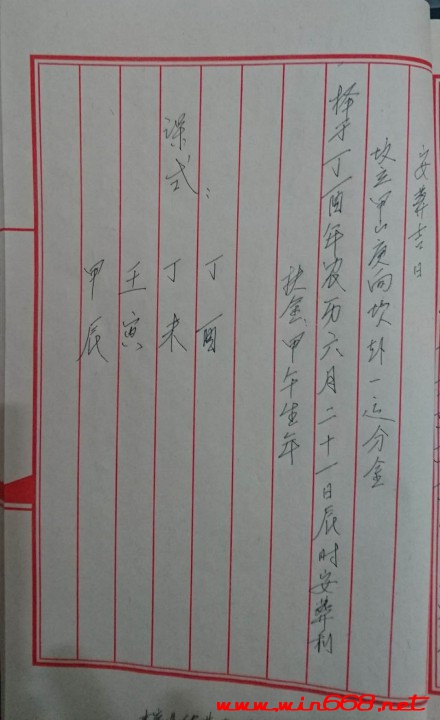 安葬吉日
坟立甲山庚向坎卦一运分金
择于丁酉年农历六月二十一日辰时安葬利
扶金甲午生年
课式：
丁酉
丁未
壬寅
甲辰
www.win668.net